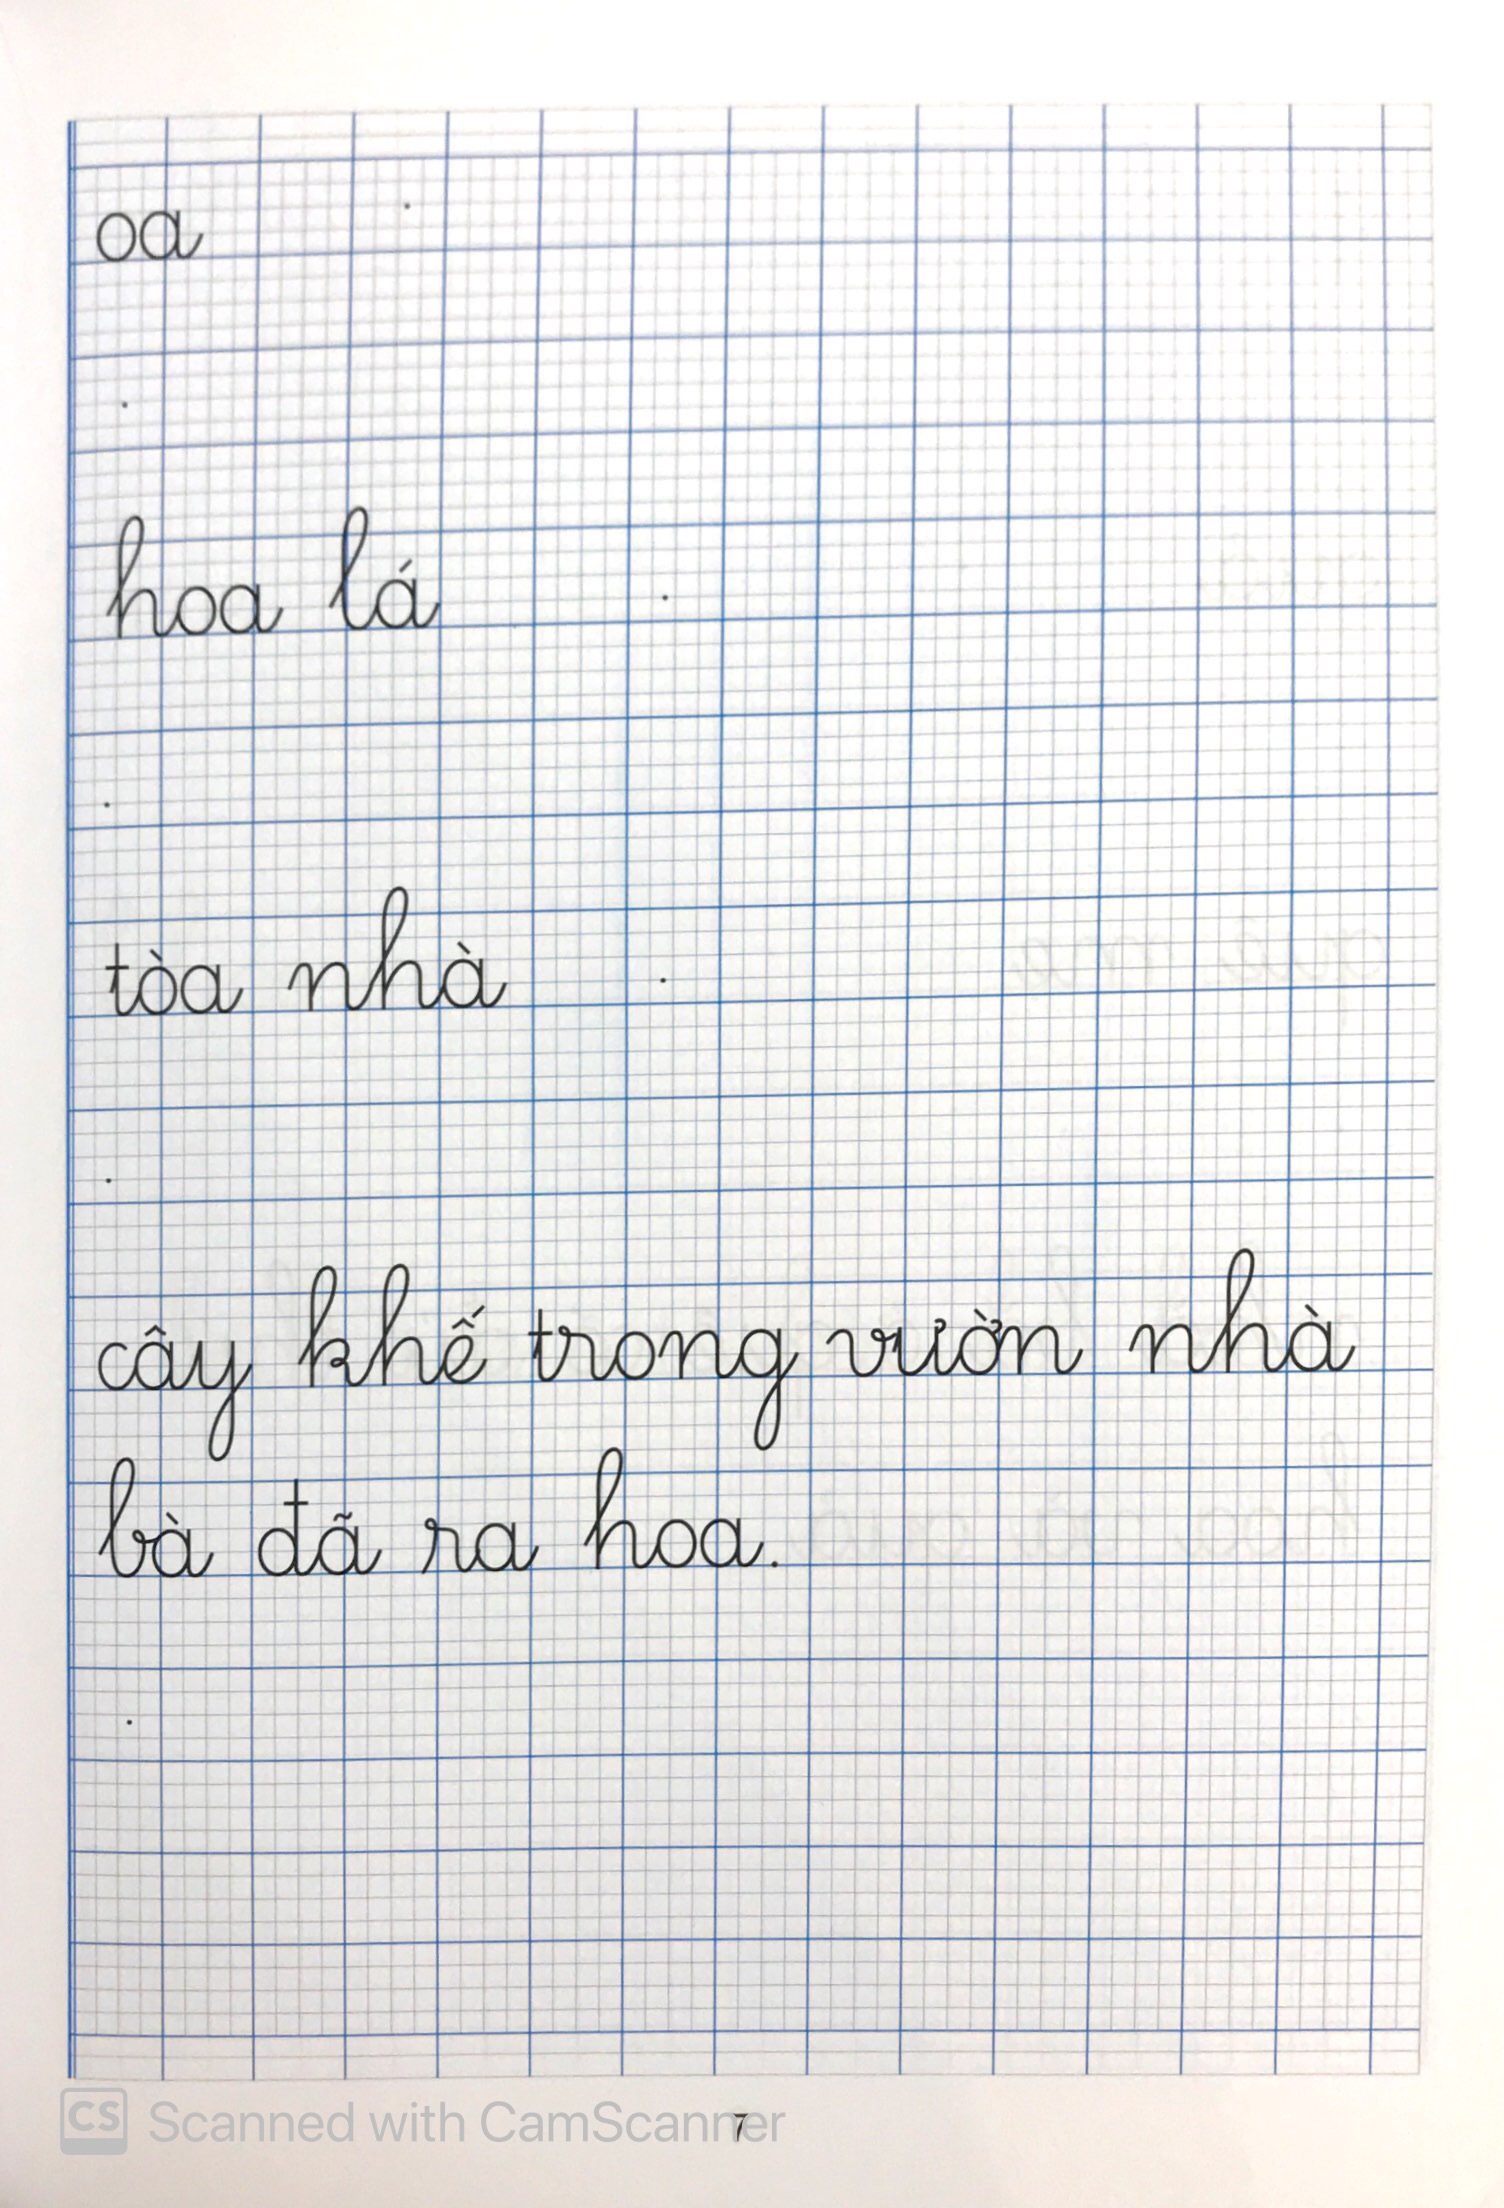 oa
hoa lá
tòa nhà
cây khế trong vườn nhà
bà đã ra hoa.
CS Scanned with CamScanner
7